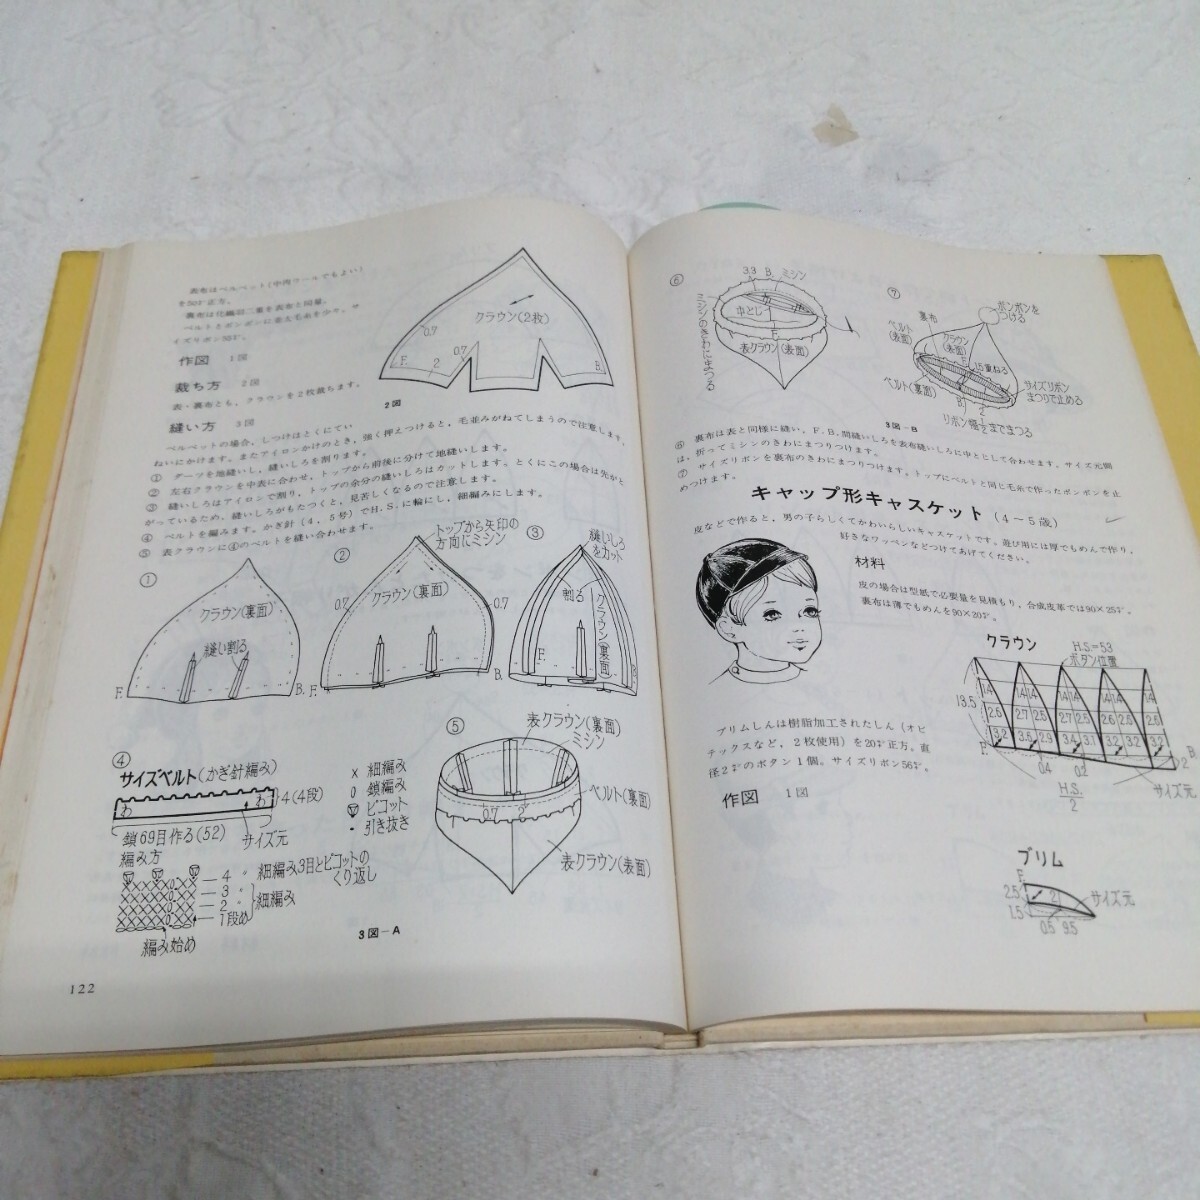 表布はベルベット(中肉ウールでもよい)
を50㌢正方。
裏布は化繊羽二重を表布と同量。
ベルトとボンボンに並太毛糸を少々。サ
イズリボン55㌢。
作図 1図
裁ち方 2図
表・裏布とも、クラウンを2枚裁ちます。
縫い方 3図
ベルベットの場合、しつけはとくにてい
ねいにかけます。またアイロンかけのとき、強く押えつけると、毛並みがねてしまうので注意します。
① ダーツを地縫いし、縫いしろを割ります。
② 左右クラウンを中表に合わせ、トップから前後に分けて地縫いします。
③ 縫いしろはアイロンで割り、トップの余分の縫いしろはカットします。とくにこの場合は先がと
がっているため、縫いしろがもたつくと、見苦しくなるので注意します。
④ ベルトを編みます。かぎ針(4、5号)でH.S.に輪にし、細編みにします。
⑤ 表クラウンに④のベルトを縫い合わせます。
クラウン(2枚)
0.7
F.
2
0.7
B.
2図
①
クラウン(裏面)
縫い割る
F.
B.
②
トップから矢印の
方向にミシン
クラウン(裏面)
0.7
0.7
F.
B.
③
縫いしろ
をカット
割る
クラウン(裏面)
F
B
④
サイズベルト(かぎ針編み)
わ
わ
4(4段)
鎖69目作る(52)
サイズ元
編み方
× 細編み
0 鎖編み
ピコット
・ 引き抜き
4 〃 細編み3目とピコットの
くり返し
3 〃
2 〃
1段め
細編み
編み始め
⑤
表クラウン(裏面)
ミシン
ベルト(裏面)
0.7
2
表クラウン(表面)
3図-A
122
⑥
3.3
B.
ミシン
ミシンのきわにまつる
中とじ
F.
表クラウン(表面)
⑦
ボンボンを
つける
裏布
ベルト
(表面)
クラウン
(表面)
F.
1.5重ねる
ベルト(裏面)
サイズリボン
まつりで止める
B.
2
リボン幅1/2までまつる
3図-B
⑥ 裏布は表と同様に縫い、F.B.間縫いしろを表布縫いしろに中とじして合わせます。サイズ元側
は、折ってミシンのきわにまつりつけます。
⑦ サイズリボンを裏布のきわにまつりつけます。トップにベルトと同じ毛糸で作ったボンボンを止
めつけます。
キャップ形キャスケット(4~5歳)
皮などで作ると、男の子らしくてかわいらしいキャスケットです。遊び用には厚でもめんで作り、
好きなワッペンなどつけてあげてください。
材料
皮の場合は型紙で必要量を見積もり、合成皮革では90×25㌢。
裏布は薄でもめんを90×20㌢。
ブリムしんは樹脂加工されたしん(オビ
テックスなど、2枚使用)を20㌢正方。直
径2㌢のボタン1個。サイズリボン56㌢。
作図 1図
クラウン
H.S.=53
ボタン位置
13.5
1.4 1.4 1.4 1.4 1.4 1.4 1.4
2.6 2.7 2.5 2.7 2.5
3.2 3.5 2.9 3.4 3.1 3.2 3.2 3.2
F.
B.
0.4
0.2
2
H.S./2
サイズ元
ブリム
F.
2.5
2
1.5
0.5
9.5
サイズ元